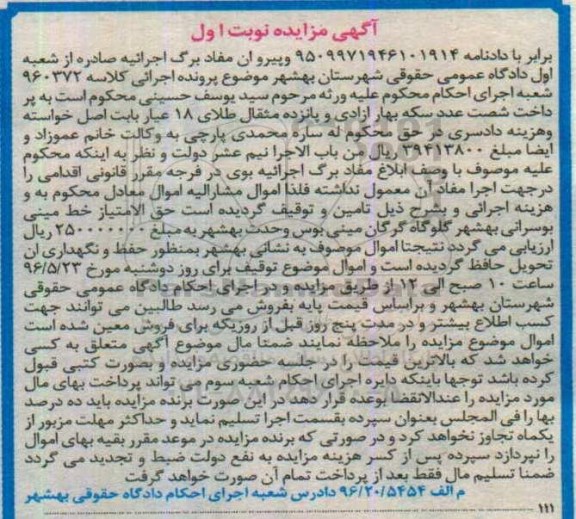 آگهی مزایده نوبت اول
برابر با دادنامه ۹۵۰۹۹۷۱۹۴۶۱۰۱۹۱۴ وپیرو ان مفاد برگ اجرائیه صادره از شعبه
اول دادگاه عمومی حقوقی شهرستان بهشهر موضوع پرونده اجرائی کلاسه ۹۶۰۳۷۲
شعبه اجرای احکام محکوم علیه ورثه مرحوم سید یوسف حسینی محکوم است به پر
داخت شصت عدد سکه بهار ازادی و پانزده مثقال طلای ۱۸ عیار بابت اصل خواسته
وهزینه دادرسری در حق محکوم له ساره محمدی پارچی به وکالت خانم عموزاد و
ایضا مبلغ ۳۹۴۱۳۸۰۰ ریال من باب الاجرا نیم عشر دولت و نظر به اینکه محکوم
علیه موصوف با وصف ابلاغ مفاد برگ اجرائیه بوی در فرجه مقرر قانونی اقدامی را
درجهت اجرا مفاد آن معمول نداشته فلذا اموال مشارالیه اموال معادل محکوم به و
هزینه اجرائی و بشرح ذیل تامین و توقیف گردیده است حق الامتیاز خط مینی
بوسرانی بهشهر گلوگاه گرگان مینی بوس وحدت بهشهر به مبلغ ۲۵۰۰۰۰۰۰۰ ریال
ارزیابی می گردد نتیجتا اموال موصوف به نشانی بهشهر بمنظور حفظ و نگهداری ان
تحویل حافظ گردیده است و اموال موضوع توقیف برای روز دوشنبه مورخ ۹۶/۵/۲۳
ساعت ۱۰ صبح الی ۱۲ از طریق مزایده و در اجرای احکام دادگاه عمومی حقوقی
شهرستان بهشهر و براساس قیمت پایه بفروش می رسد طالبین می توانند جهت
کسب اطلاع بیشتر و در مدت پنج روز قبل از روزیکه برای فروش معین شده است
اموال موضوع مزایده را ملاحظه نمایند ضمتا مال موضوع آگهی متعلق به کسی
خواهد شد که بالاترین قیمت را در جلسه حضوری مزایده و بصورت کتبی قبول
کرده باشد توجها باینکه دایره اجرای احکام شعبه سوم می تواند پرداخت بهای مال
مورد مزایده را عندالانقضا بوعده قرار دهد در این صورت برنده مزایده باید ده درصد
بها را فی المجلس بعنوان سپرده بقسمت اجرا تسلیم نماید و حداکثر مهلت مزبور از
یکماه تجاوز نخواهد کرد و در صورتی که برنده مزایده در موعد مقرر بقیه بهای اموال
را نپردازد سپرده پس از کسر هزینه مزایده به نفع دولت ضبط و تجدید می گردد
ضمنا تسلیم مال فقط بعد از پرداخت تمام آن صورت خواهد گرفت
م الف ۹۶/۲۰/۵۴۵۴ دادرس شعبه اجرای احکام دادگاه حقوقی بهشهر
۱۱۱